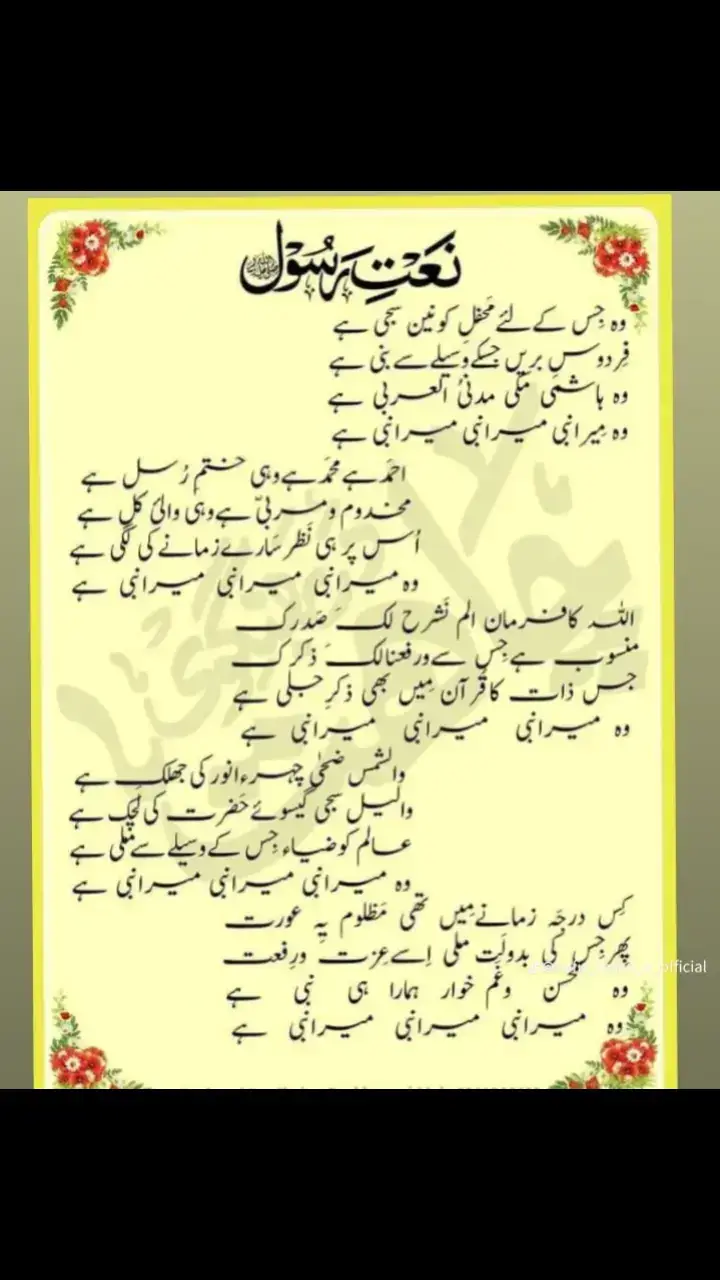 نَعَتِ رَسُوْل ﷺ
وہ جِس کے لئے مَحفلِ کونین سجی ہے
فِردوسِ بریں جسکے وَسیلے سے بنی ہے
وہ ہاشمی مَکّی مدنیُ العربی ہے
وہ مِیرا نبی میرا نبی میرا نبی ہے
احمَد ہے محمَد ہے وہی ختمِ رُسل ہے
مخدوم و مربّی ہے وہی والئ کل ہے
اُس پر ہی نَظر سَارے زمانے کی لَگی ہے
وہ میرا نبی میرا نبی میرا نبی ہے
اللہ کا فرمان الم نَشرح لکَ صَدرک
منسوب ہے جِس سے ورفعنا لکَ ذکرک
جس ذات کا قُرآن مِیں بھی ذکرِ جلی ہے
وہ میرا نبی میرا نبی میرا نبی ہے
والشمس ضحیٰ چہرہ انور کی جھلک ہے
والیل سجی گیسوئے حَضرت کی لَچک ہے
عالم کو ضیاء جِس کے وسیلے سے مَلی ہے
وہ میرا نبی میرا نبی میرا نبی ہے
کِس درجَہ زمانے مِیں تھی مَظلوم یِہ عورت
پھر جِس کی بدولَت ملی اِسے عِزت و رِفعت
وہ محسن و غَم خوار ہمارا ہی نبی ہے
وہ میرا نبی میرا نبی میرا نبی ہے
official